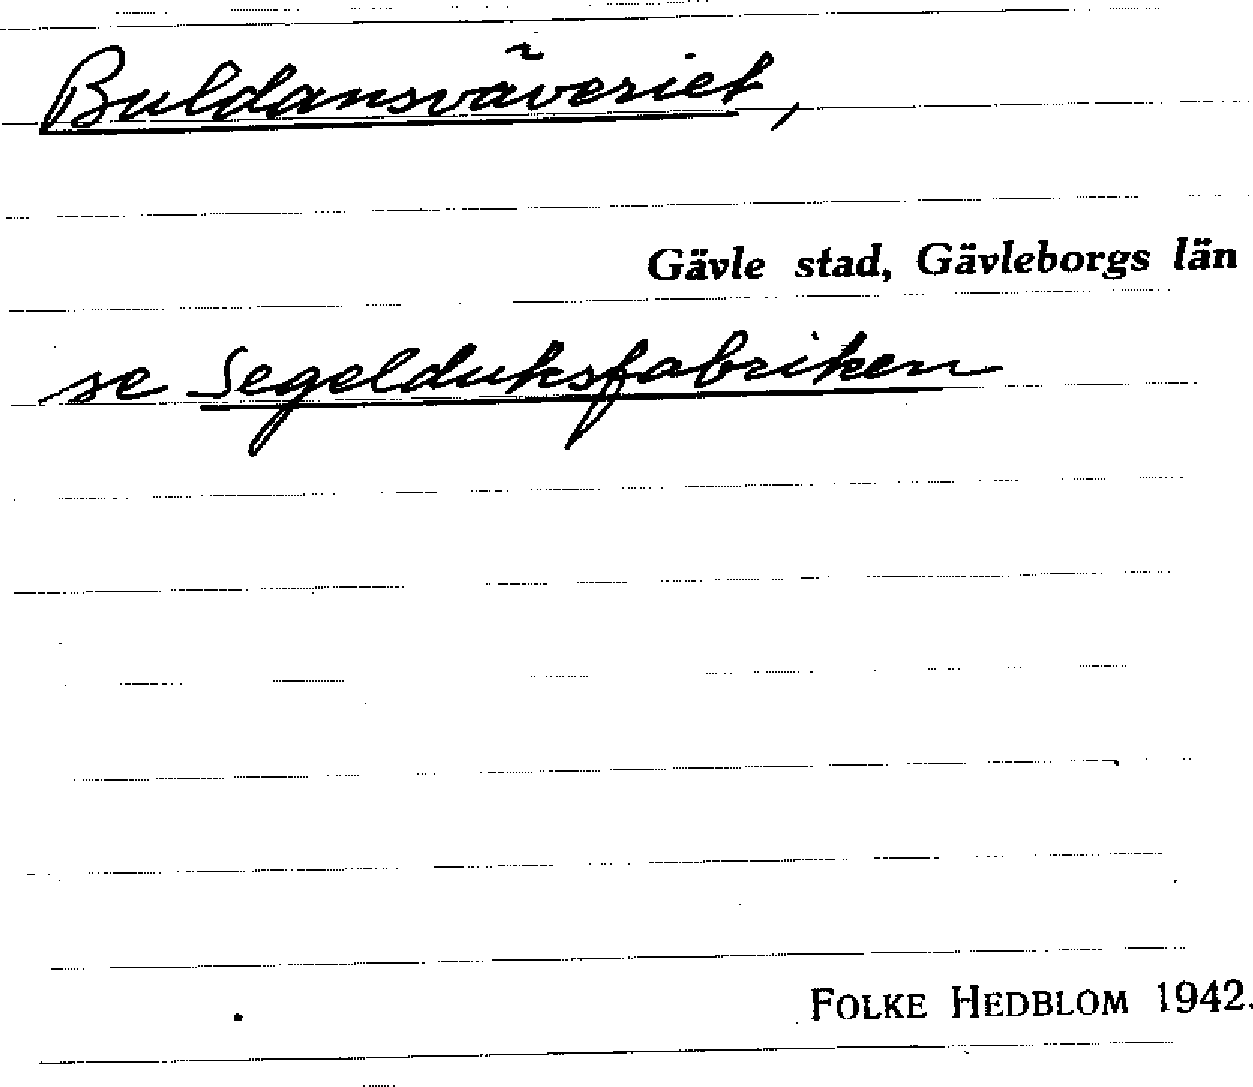 Buldansväveriet,
Gävle stad, Gävleborgs län
se Segelduksfabriken
FOLKE HEDBLOM 1942.